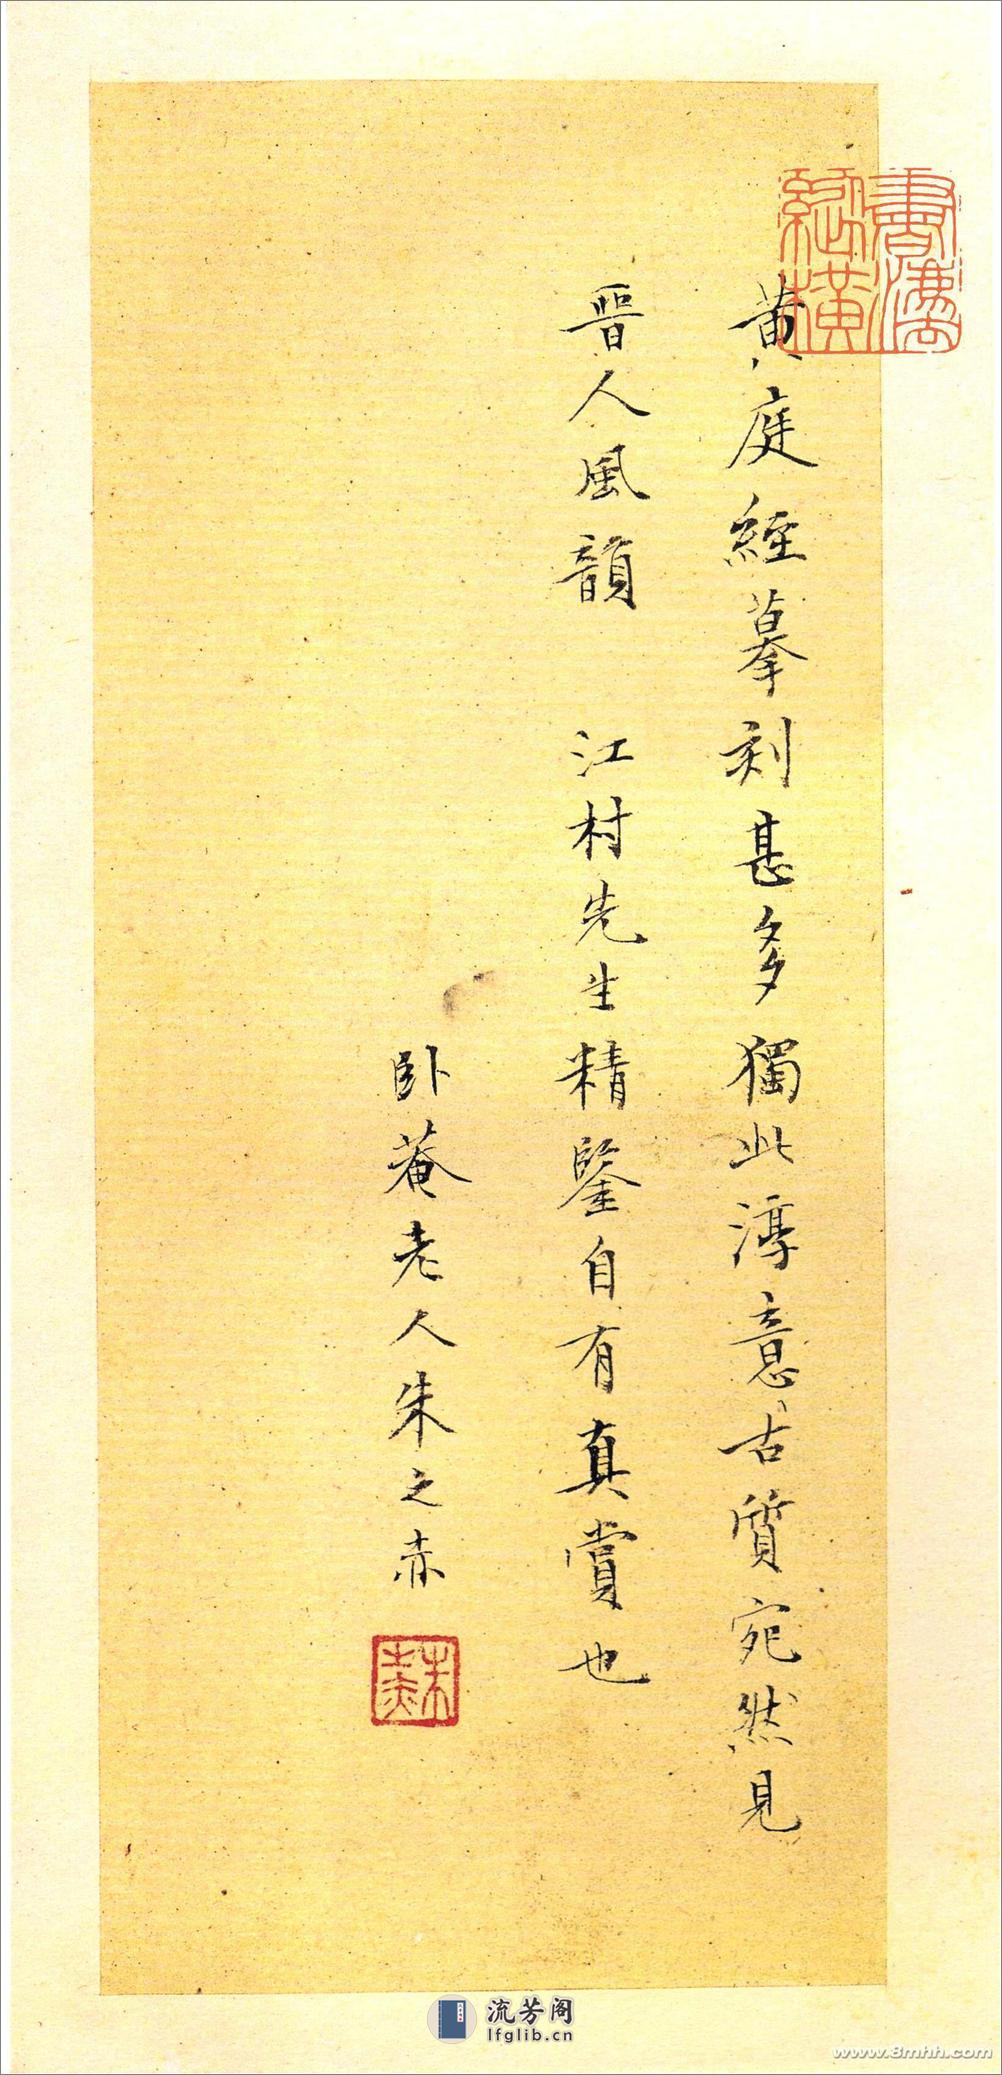 黄庭經摹刻甚多獨此淳意古質宛然見
晉人風韻 江村先生精鑒自有真賞也
卧菴老人朱之赤
流芳阁
lfglib.cn
www.8mhh.com